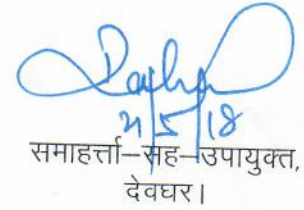 21/5/18
समाहर्त्ता–सह–उपायुक्त,
देवघर।